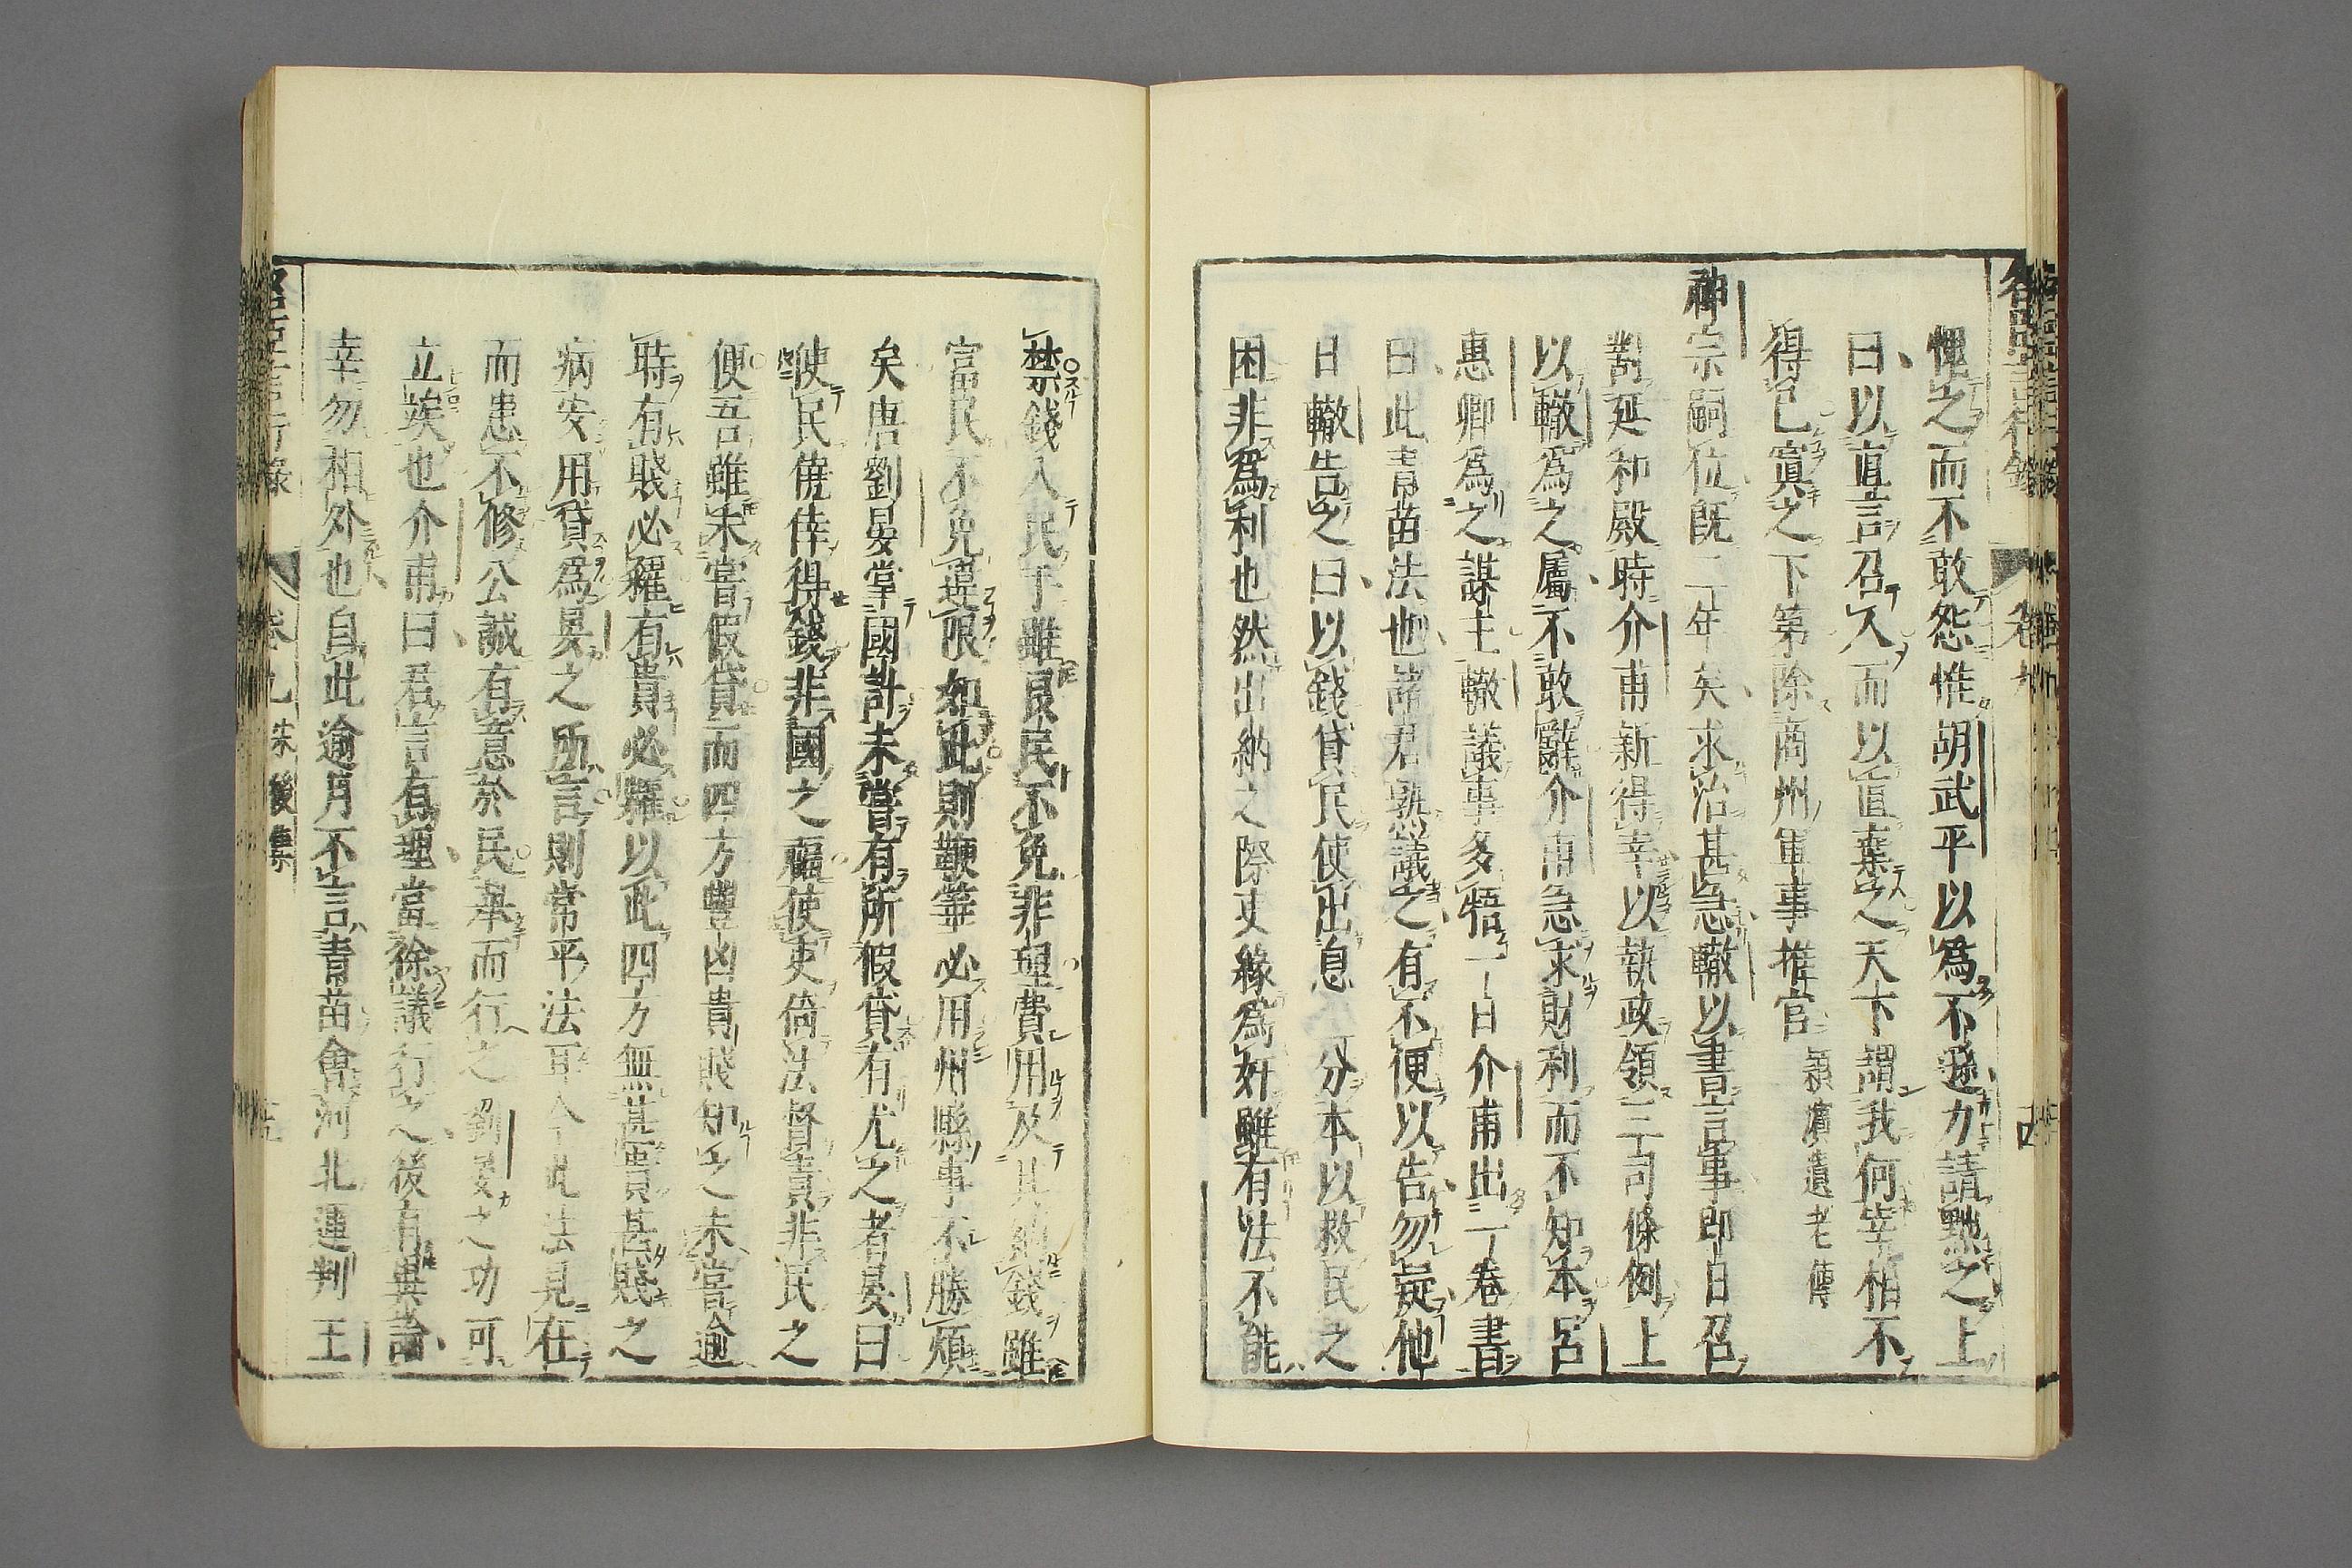 愧之而不敢怨惟胡武平以爲不遜力請黜之上
曰以直言召人而以直棄之天下謂我何宰相不
得已寘之下第除商州軍事推官潁濱遺老傳
神宗嗣位既二年矣求治甚急轍以書言事即日召
對延和殿時介甫新得幸以執政領三司條例上
以轍爲之屬不敢辭介甫急求財利而不知本呂
惠卿爲之謀主轍議事多牾一日介甫出一卷書
曰此青苗法也諸君熟議之有不便以告勿疑他
日轍告之曰以錢貸民使出息 分本以救民之
困非爲利也然出納之際吏緣爲奸雖有法不能
禁錢入民手雖良民不免非理費用及其納錢雖
富民不免違限如此則鞭箠必用州縣事不勝煩
矣唐劉晏掌國計未嘗有所假貸有尤之者晏曰
使民僥倖得錢非國之福使吏倚法督責非民之
便吾雖未嘗假貸而四方豐凶貴賤知之未嘗逾
時有賤必糴有貴必糶以此四方無甚貴甚賤之
病安用貸爲晏之所言則常平法耳今此法見在
而患不修公誠有意於民舉而行之劉晏之功可
立竢也介甫曰君言有理當徐議行之後有異論
幸勿相外也自此逾月不言青苗會河北運判王
名臣言行錄 卷九 十四
名臣言行錄 卷九 後集